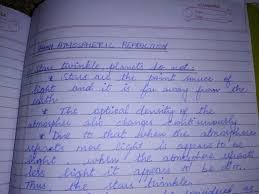 ATMOSPHERIC REFRACTION
Stars twinkle planets do not:
* Stars are the point source of
light and it is far away from the
earth.
* The optical density of the
atmosphere changes continuously.
* Due to that when the atmosphere
refracts more light is appears to be
bright, when the atmosphere refracts
less light it appears to be dim.
Thus, the stars twinkle.